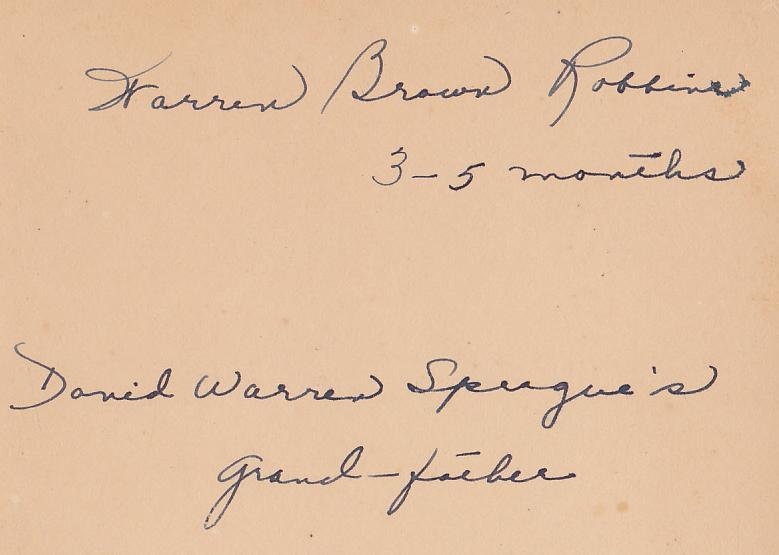 Warren Brown Robbins
3-5 months
David Warren Sprague's
grand-father